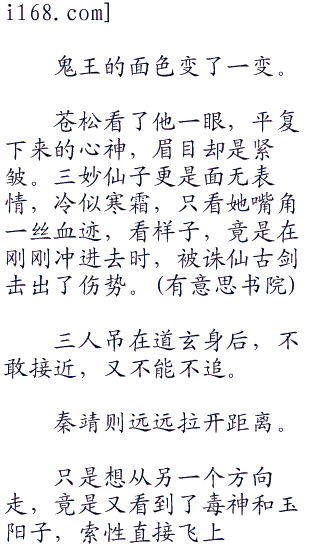 i168.com]
鬼王的面色变了一变。
苍松看了他一眼，平复
下来的心神，眉目却是紧
皱。三妙仙子更是面无表
情，冷似寒霜，只看她嘴角
一丝血迹，看样子，竟是在
刚刚冲进去时，被诛仙古剑
击出了伤势。(有意思书院)
三人吊在道玄身后，不
敢接近，又不能不追。
秦靖则远远拉开距离。
只是想从另一个方向
走，竟是又看到了毒神和玉
阳子，索性直接飞上